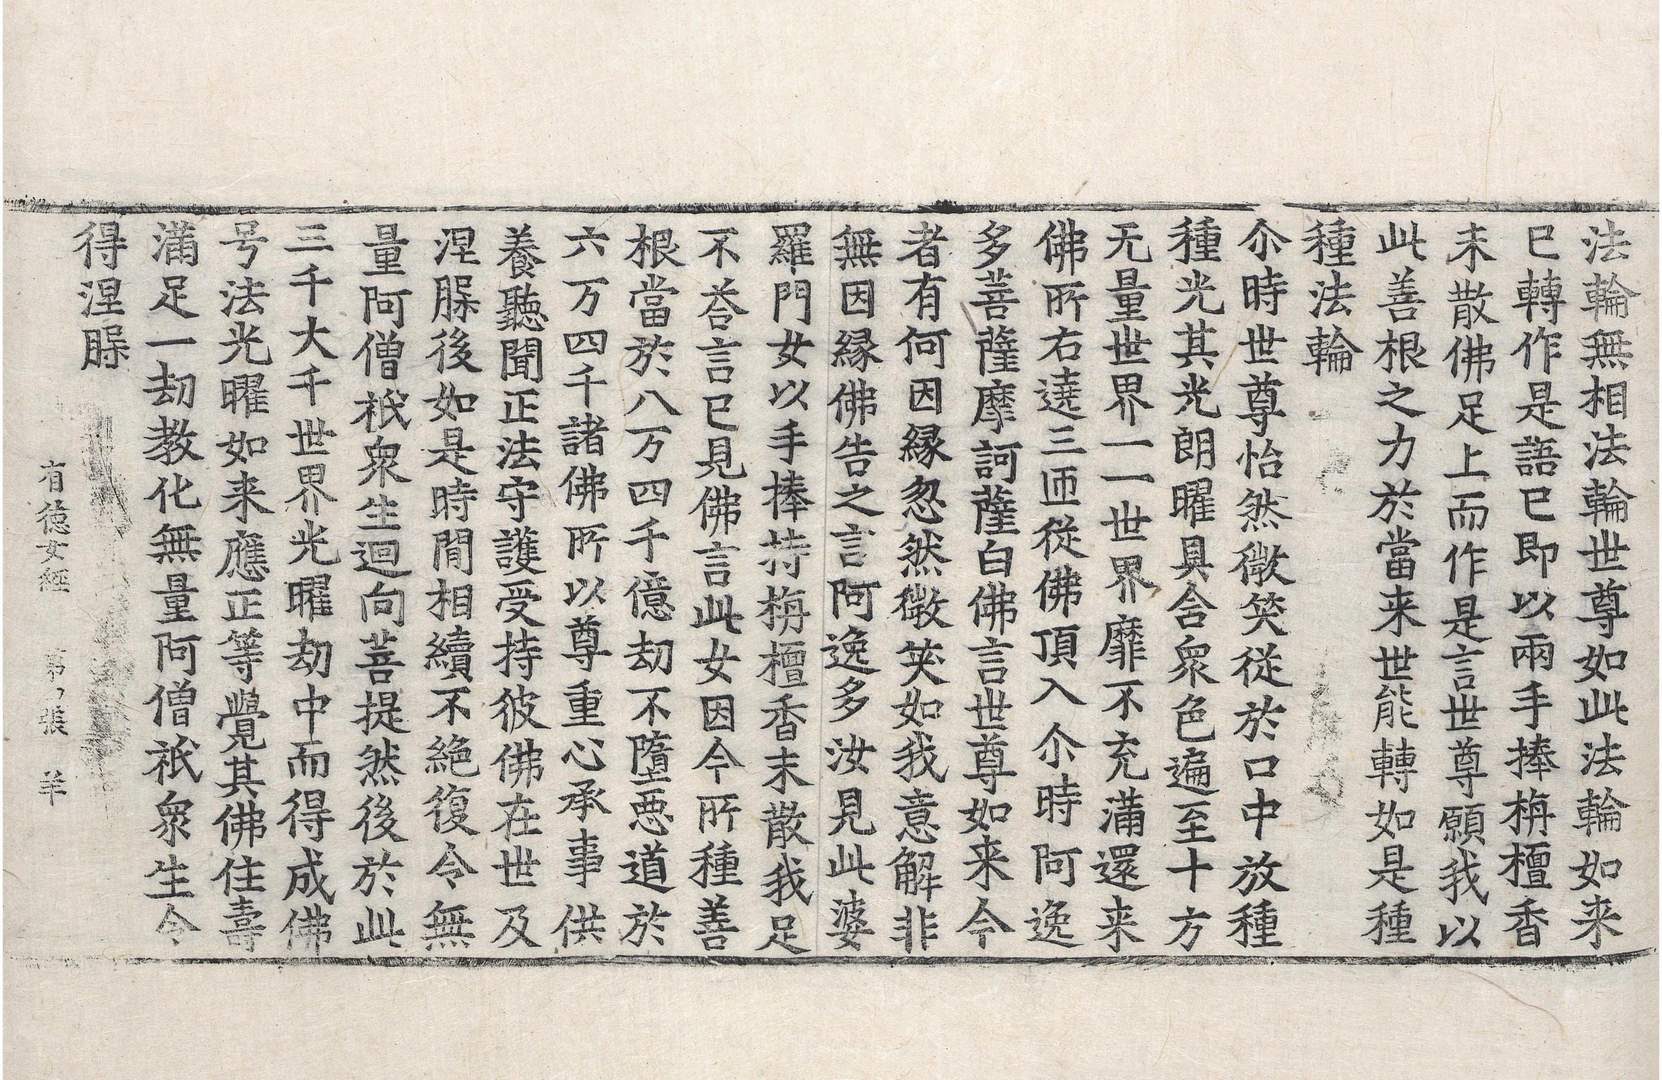 法輪無相法輪世尊如此法輪如来
已轉作是語已即以兩手捧栴檀香
末散佛足上而作是言世尊願我以
此善根之力於當来世能轉如是種
種法輪
尒時世尊怡然微笑從於口中放種
種光其光朗曜具含衆色遍至十方
无量世界一一世界靡不充滿還来
佛所右遶三匝從佛頂入尒時阿逸
多菩薩摩訶薩白佛言世尊如来今
者有何因緣忽然微笑如我意解非
無因緣佛告之言阿逸多汝見此婆
羅門女以手捧持栴檀香末散我足
不荅言已見佛言此女因今所種善
根當於八万四千億劫不墮惡道於
六万四千諸佛所以尊重心承事供
養聽聞正法守護受持彼佛在世及
涅槃後如是時閒相續不絶復令無
量阿僧祇衆生迴向菩提然後於此
三千大千世界光曜劫中而得成佛
号法光曜如来應正等覺其佛住壽
滿足一劫教化無量阿僧祇衆生令
得涅槃
有德女經 第 張 羊